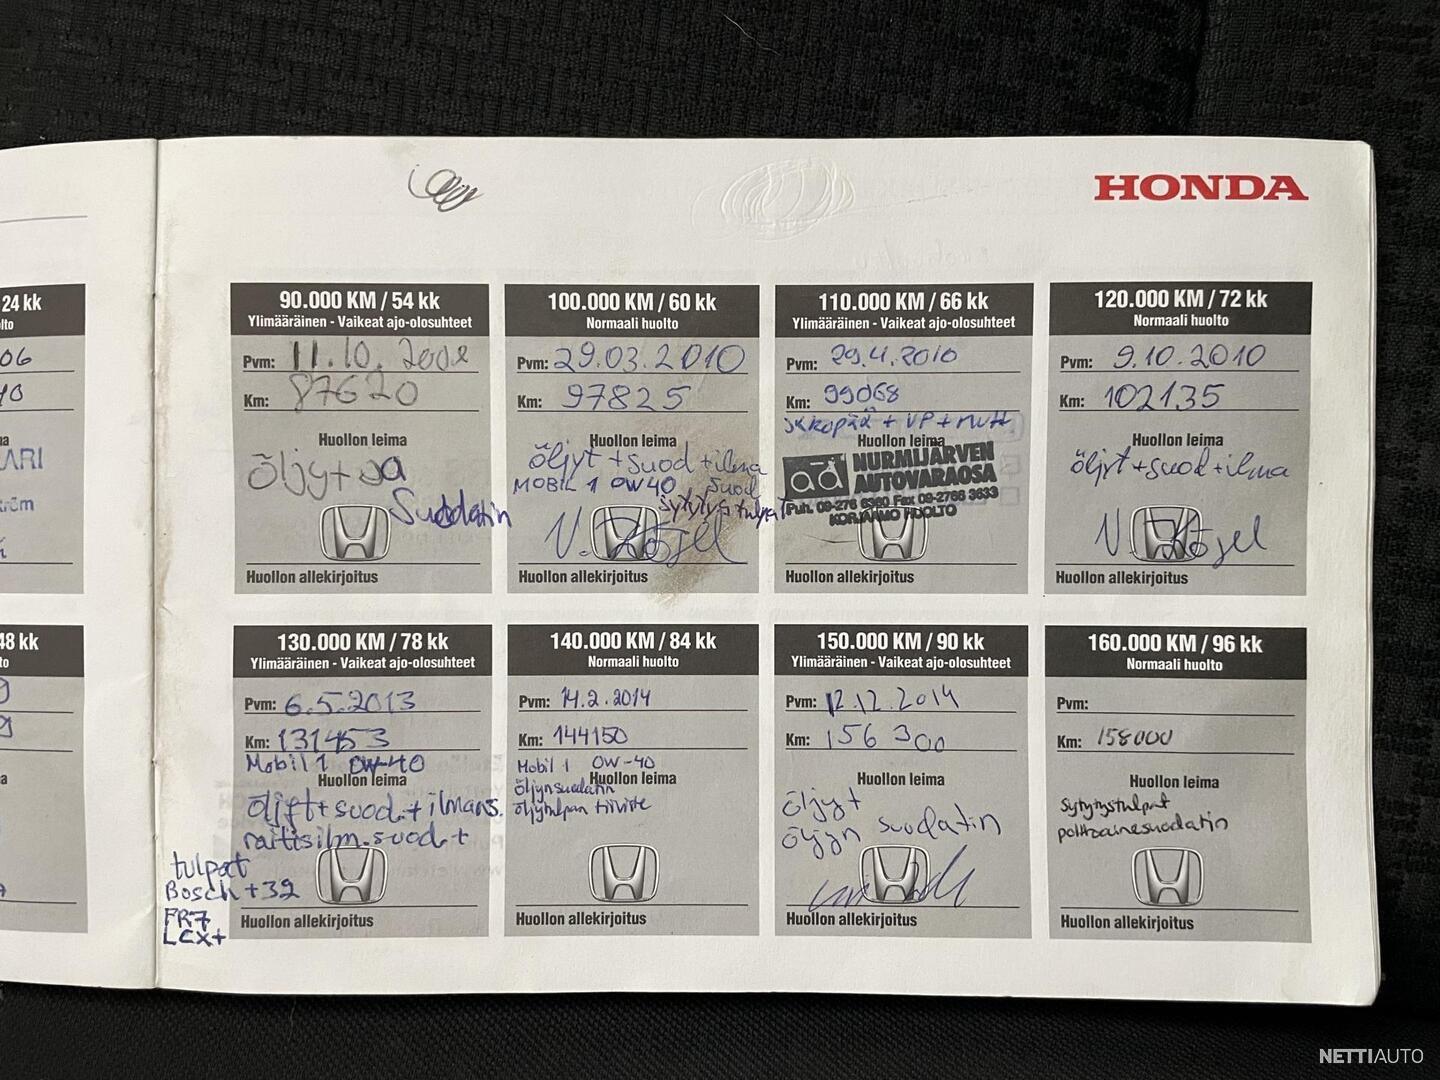 HONDA
24 kk
06
48 kk
90.000 KM / 54 kk
Ylimääräinen - Vaikeat ajo-olosuhteet
Pvm: 11.10.2008
Km: 87620
Huollon leima
öljyt ja
Suodatin
Huollon allekirjoitus
100.000 KM / 60 kk
Normaali huolto
Pvm: 29.03.2010
Km: 97825
Huollon leima
öljyt + suod + ilma
MOBIL 1 0W40 suod
sytytystulpat
Huollon allekirjoitus
110.000 KM / 66 kk
Ylimääräinen - Vaikeat ajo-olosuhteet
Pvm: 29.4.2010
Km: 99068
Huollon leima
ad NURMIJÄRVEN
AUTOVARAOSA
Puh. 09-276 6360 Fax 09-2766 3633
KORJAAMO HUOLTO
Huollon allekirjoitus
120.000 KM / 72 kk
Normaali huolto
Pvm: 9.10.2010
Km: 102135
Huollon leima
öljyt + suod + ilma
Huollon allekirjoitus
130.000 KM / 78 kk
Ylimääräinen - Vaikeat ajo-olosuhteet
Pvm: 6.5.2013
Km: 131453
Mobil 1 0W-40
Huollon leima
öljyt + suod. + ilmans.
raitisilm.suod. +
tulpat
Bosch +32
FR7
LCX+
Huollon allekirjoitus
140.000 KM / 84 kk
Normaali huolto
Pvm: 14.2.2014
Km: 144150
Mobil 1 0W-40
Huollon leima
öljynsuodatin
öljytulpan tiiviste
Huollon allekirjoitus
150.000 KM / 90 kk
Ylimääräinen - Vaikeat ajo-olosuhteet
Pvm: 12.12.2014
Km: 156 300
Huollon leima
öljyt
öljyn suodatin
Huollon allekirjoitus
160.000 KM / 96 kk
Normaali huolto
Pvm:
Km: 158000
Huollon leima
sytytystulpat
polttoainesuodatin
Huollon allekirjoitus
NETTIAUTO